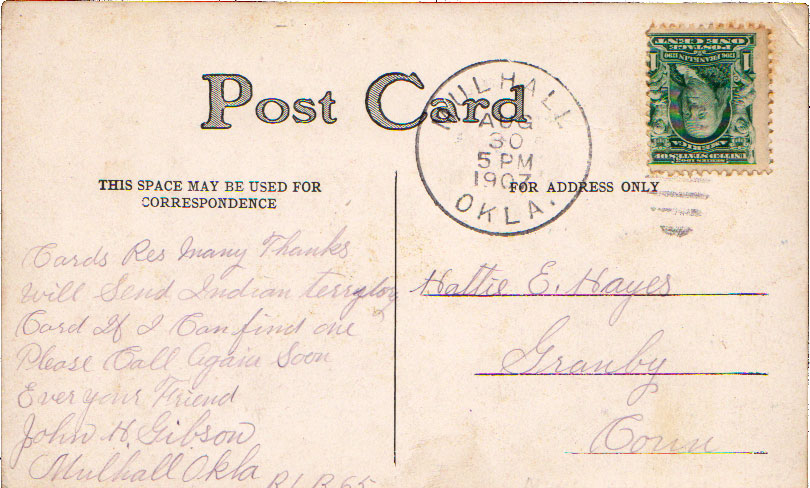 Post Card
MULHALL
AUG
30
5 PM
1907
OKLA.
ONE CENT
POSTAGE
1 1
UNITED STATES OF
AMERICA
THIS SPACE MAY BE USED FOR
CORRESPONDENCE
FOR ADDRESS ONLY
Cards Res Many Thanks
will Send Indian terrytoy
Card If I Can find one
Please Call Again Soon
Ever your Friend
John H. Gibson
Mulhall Okla
Hattie E. Hayes
Granby
Conn